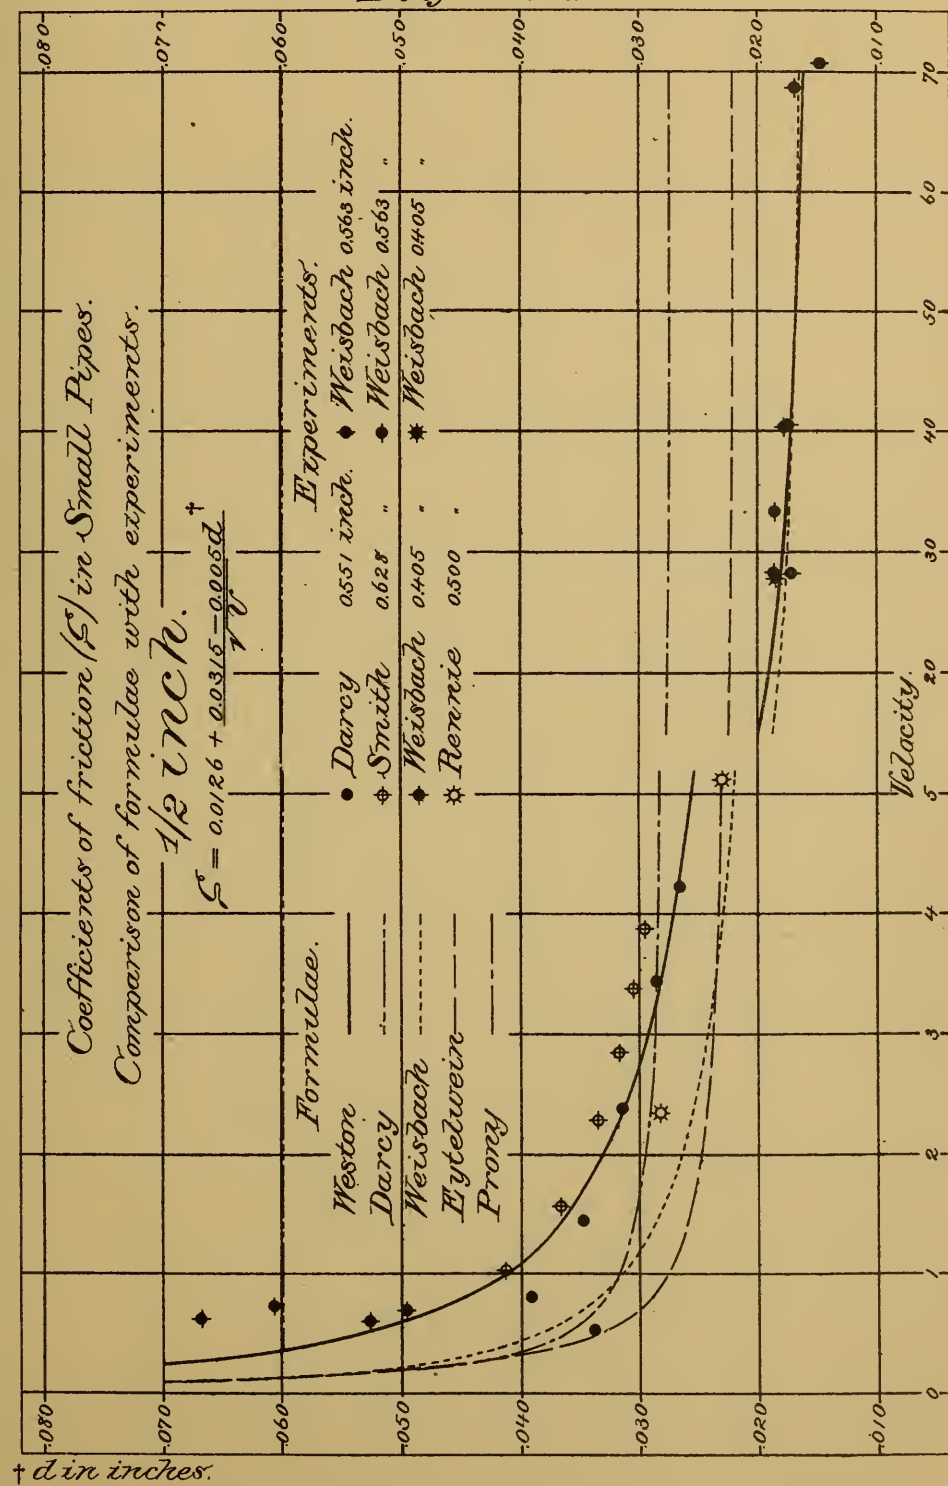 Coefficients of friction (ζ) in Small Pipes.
Comparison of formulae with experiments.
1/2 inch.
ζ = 0.0126 + (0.0315 – 0.005d†) / √v
Formulae.
Weston
Darcy
Weisbach
Eytelwein
Prony
Experiments.
Darcy 0.551 inch.
Smith 0.628 "
Weisbach 0.405 "
Rennie 0.500 "
Weisbach 0.563 inch.
Weisbach 0.563 "
Weisbach 0.405 "
.080 .070 .060 .050 .040 .030 .020 .010
.080 .070 .060 .050 .040 .030 .020 .010
0 1 2 3 4 5 20 30 40 50 60 70
Velocity.
† d in inches.